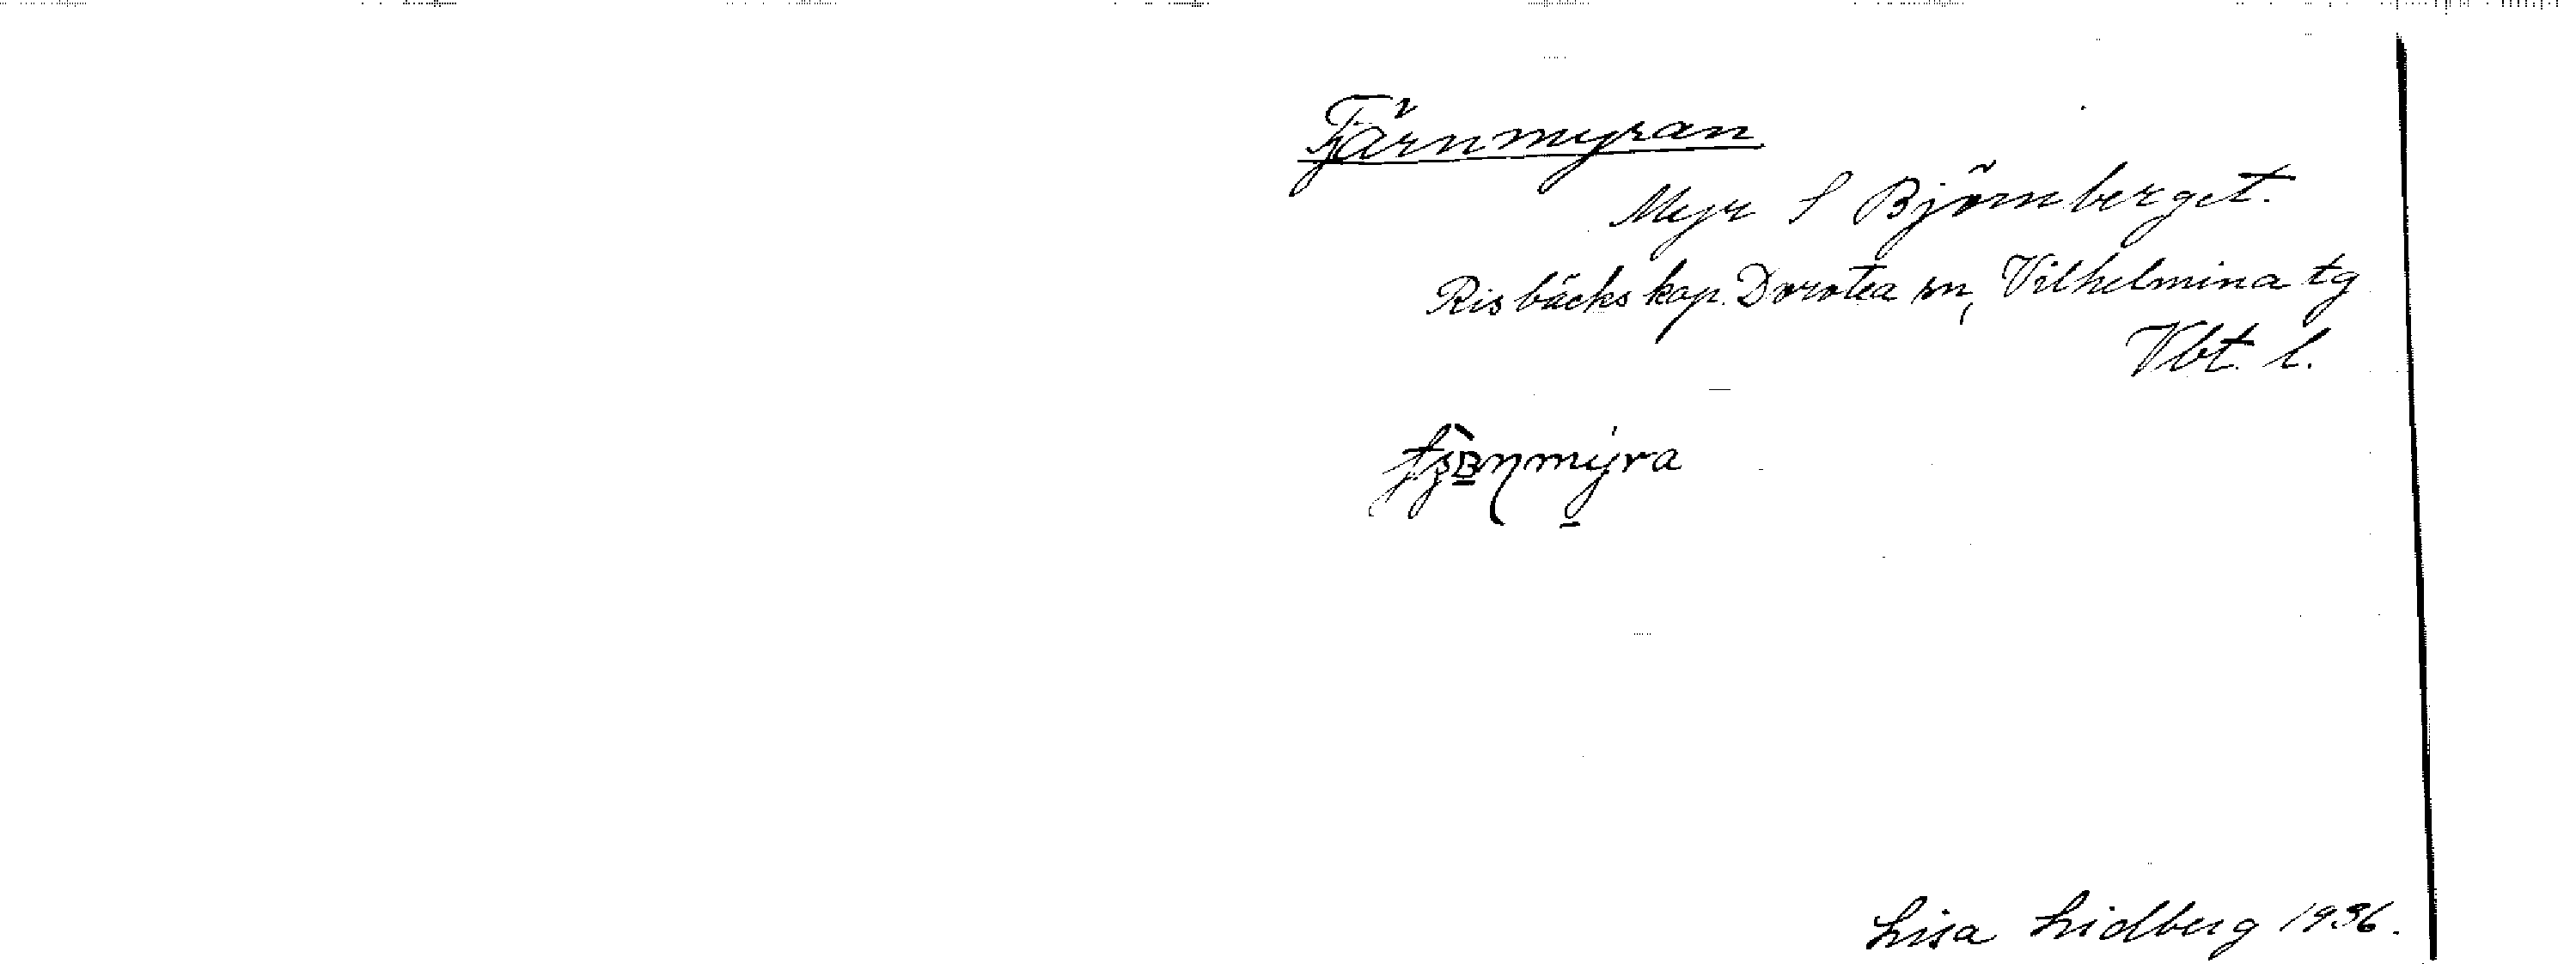 Tjärnmyran
Myr S Björnberget.
Risbäcks kap. Dorotea sn, Vilhelmina tg
Vbt. l.
Lisa Lidberg 1936.